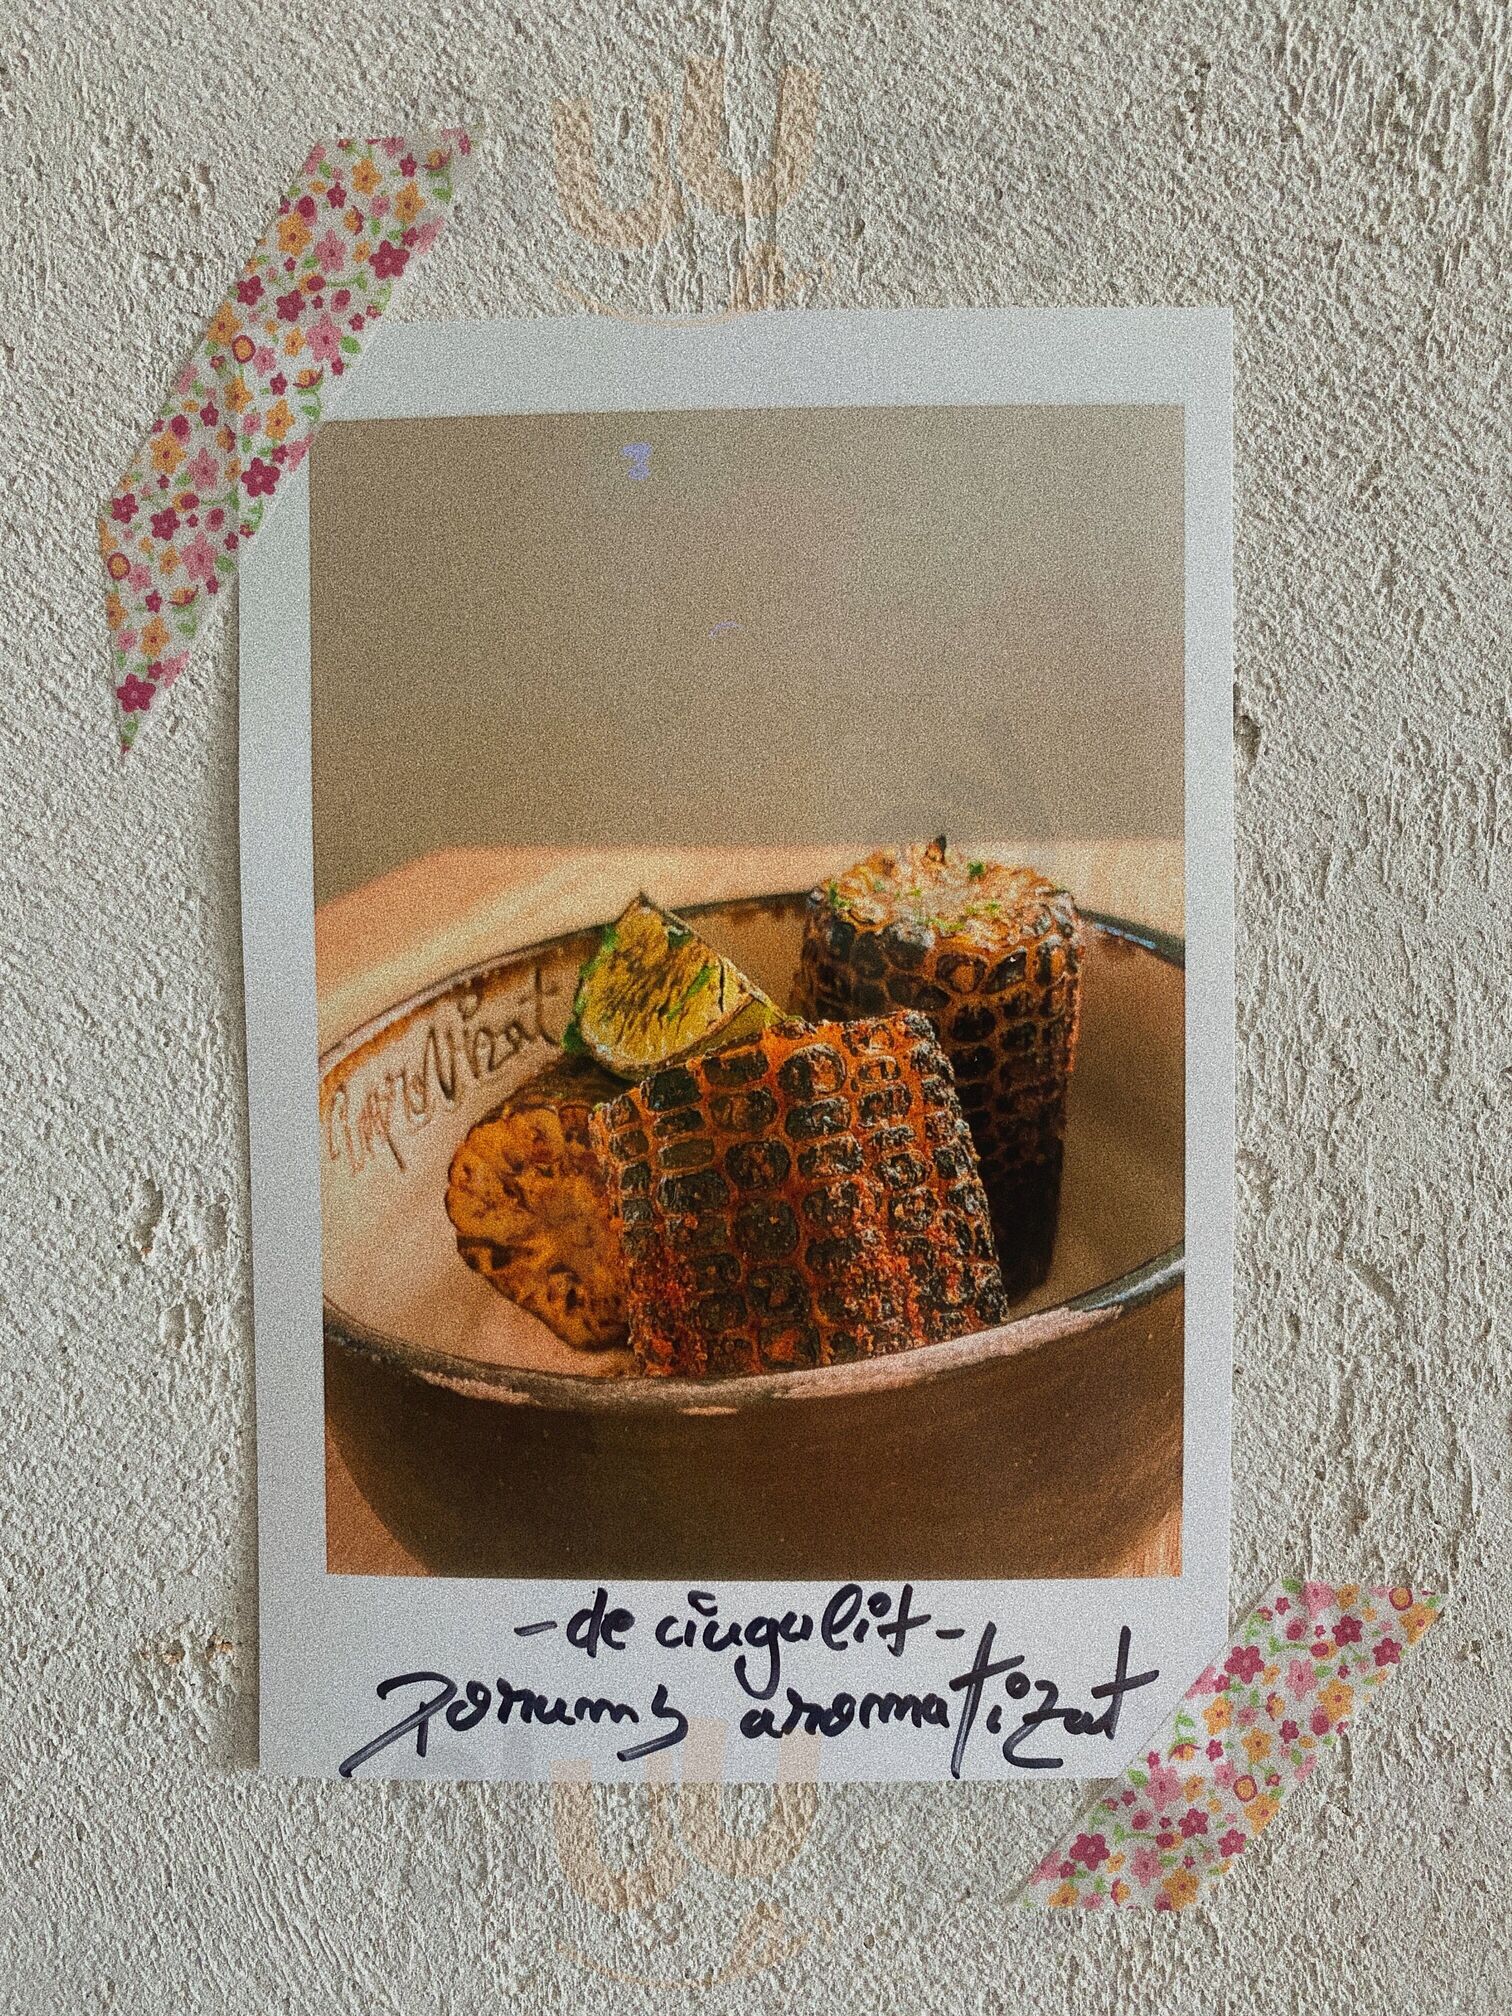 Împrovizat
- de ciugulit -
Porumb aromatizat